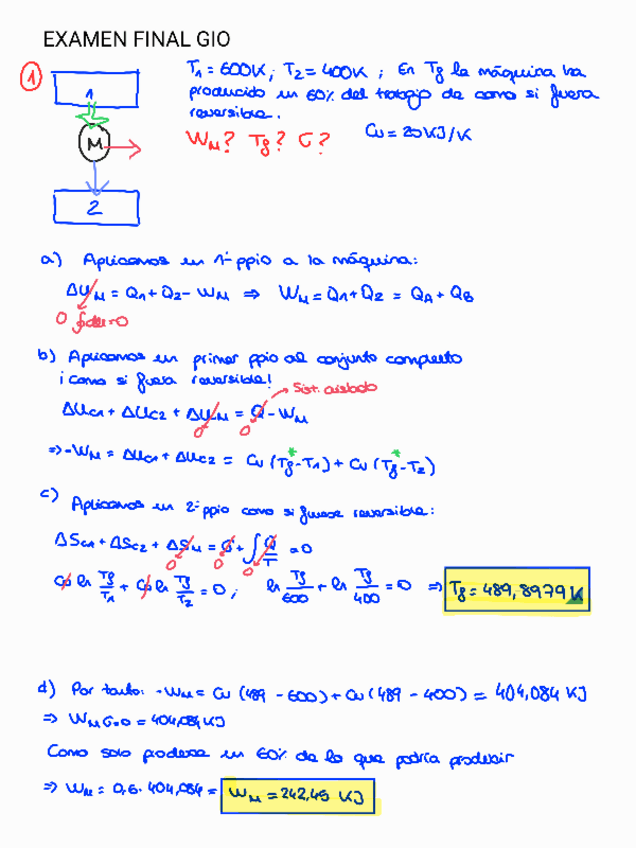 EXAMEN FINAL GIO
1
T1 = 600K ; T2 = 400K ; En Tf la máquina ha
producido un 60% del trabajo de como si fuera
reversible.
WM? Tf? σ? Cv = 20 KJ/K
1
M
2
a) Aplicamos un 1er ppio a la máquina:
ΔUM = Q1 + Q2 - WM ⇒ WM = Q1 + Q2 = QA + QB
0 ∮du=0
b) Aplicamos un primer ppio al conjunto completo
¡como si fuera reversible!
Sist. aislado
ΔUC1 + ΔUC2 + ΔUM = Q - WM
0 0
⇒ -WM = ΔUC1 + ΔUC2 = Cv (Tf* - T1) + Cv (Tf* - T2)
c) Aplicamos un 2º ppio como si fuese reversible:
ΔSC1 + ΔSC2 + ΔSM = σ + ∫ Q/T = 0
0 0 0
Cv ln Tf/T1 + Cv ln Tf/T2 = 0 ; ln Tf/600 + ln Tf/400 = 0 ⇒ Tf = 489,8979 K
d) Por tanto: -WM = Cv (489 - 600) + Cv (489 - 400) = 404,084 KJ
⇒ WM σ=0 = 404,084 KJ
Como solo produce un 60% de lo que podría producir
⇒ WM = 0,6 · 404,084 = WM = 242,45 KJ